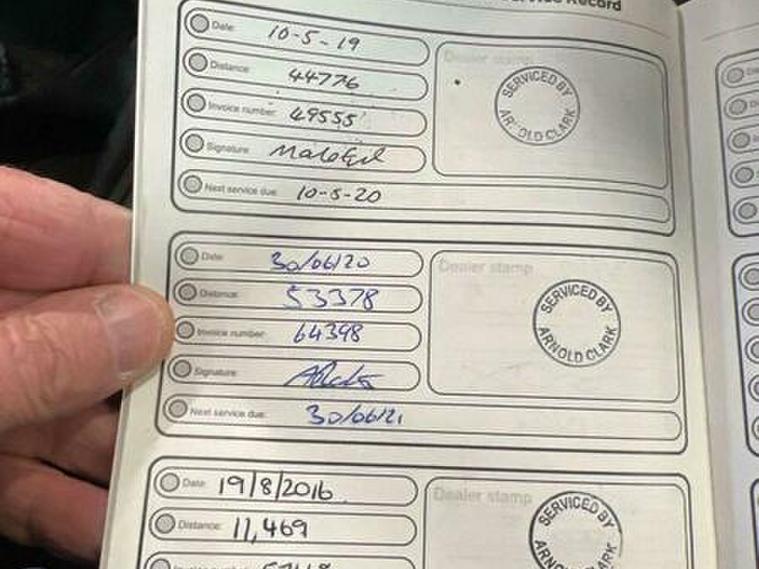 Record
Date: 10-5-19
Distance: 44776
Invoice number: 49555
Signature:
Next service due: 10-5-20
Dealer stamp
SERVICED BY
ARNOLD CLARK
Date: 30/06/20
Distance: 53378
Invoice number: 64398
Signature:
Next service due: 30/06/21
Dealer stamp
SERVICED BY
ARNOLD CLARK
Date: 19/8/2016
Distance: 11,469
Dealer stamp
SERVICED BY